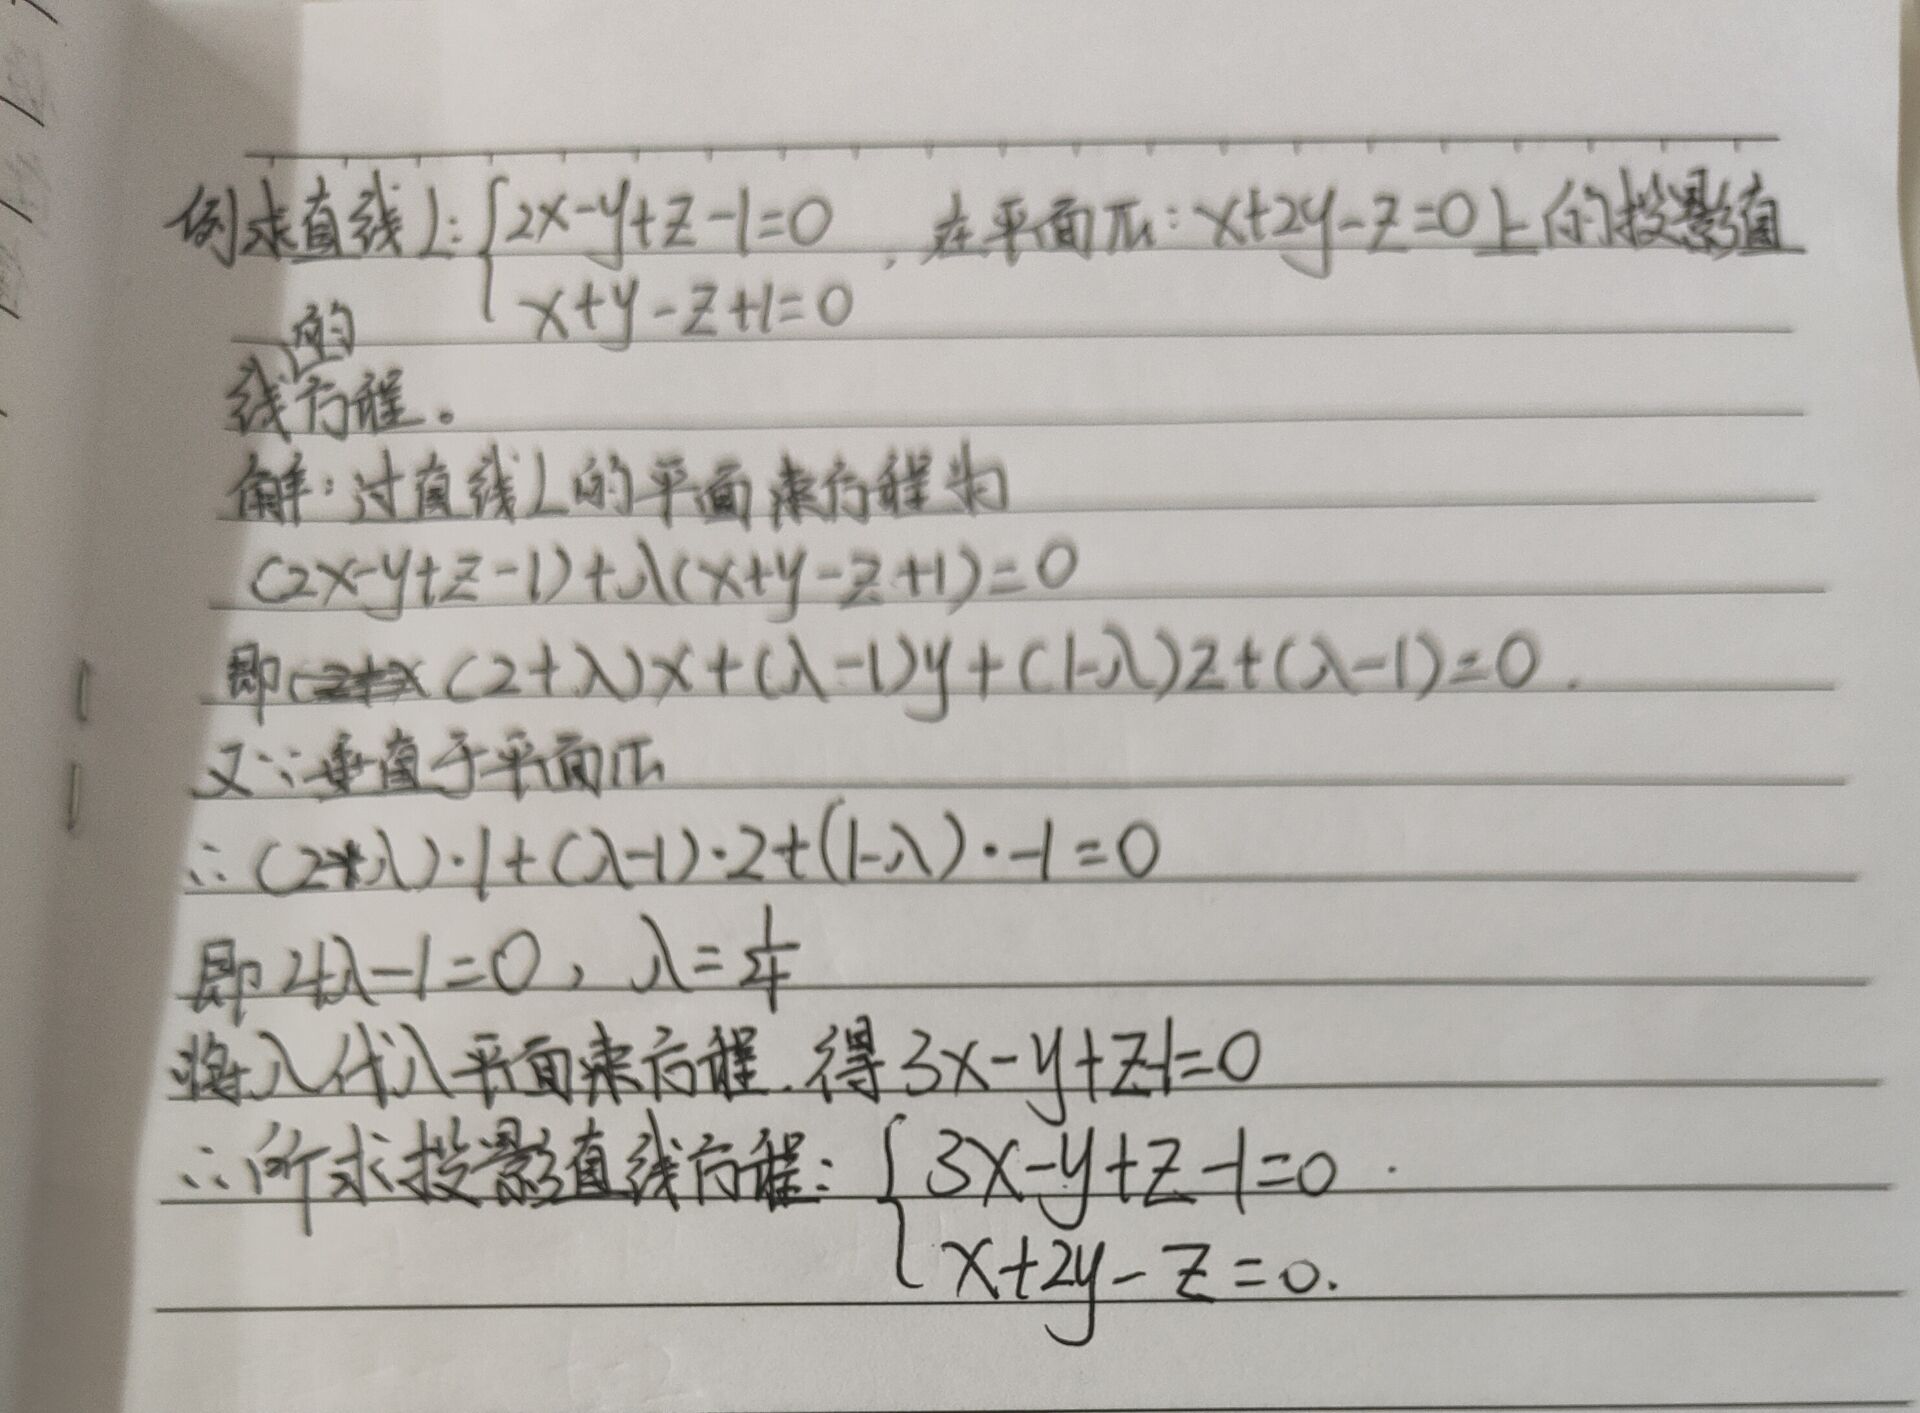 例求直线L:{2x-y+z-1=0 , 在平面π:x+2y-z=0上的投影直
x+y-z+1=0
的
线方程。
解:过直线L的平面束方程为
(2x-y+z-1)+λ(x+y-z+1)=0
即(2+λ)x+(λ-1)y+(1-λ)z+(λ-1)=0.
又∵垂直于平面π
∴(2+λ)·1+(λ-1)·2+(1-λ)·-1=0
即4λ-1=0, λ=1/4
将λ代入平面束方程.得3x-y+z-1=0
∴所求投影直线方程:{3x-y+z-1=0.
x+2y-z=0.